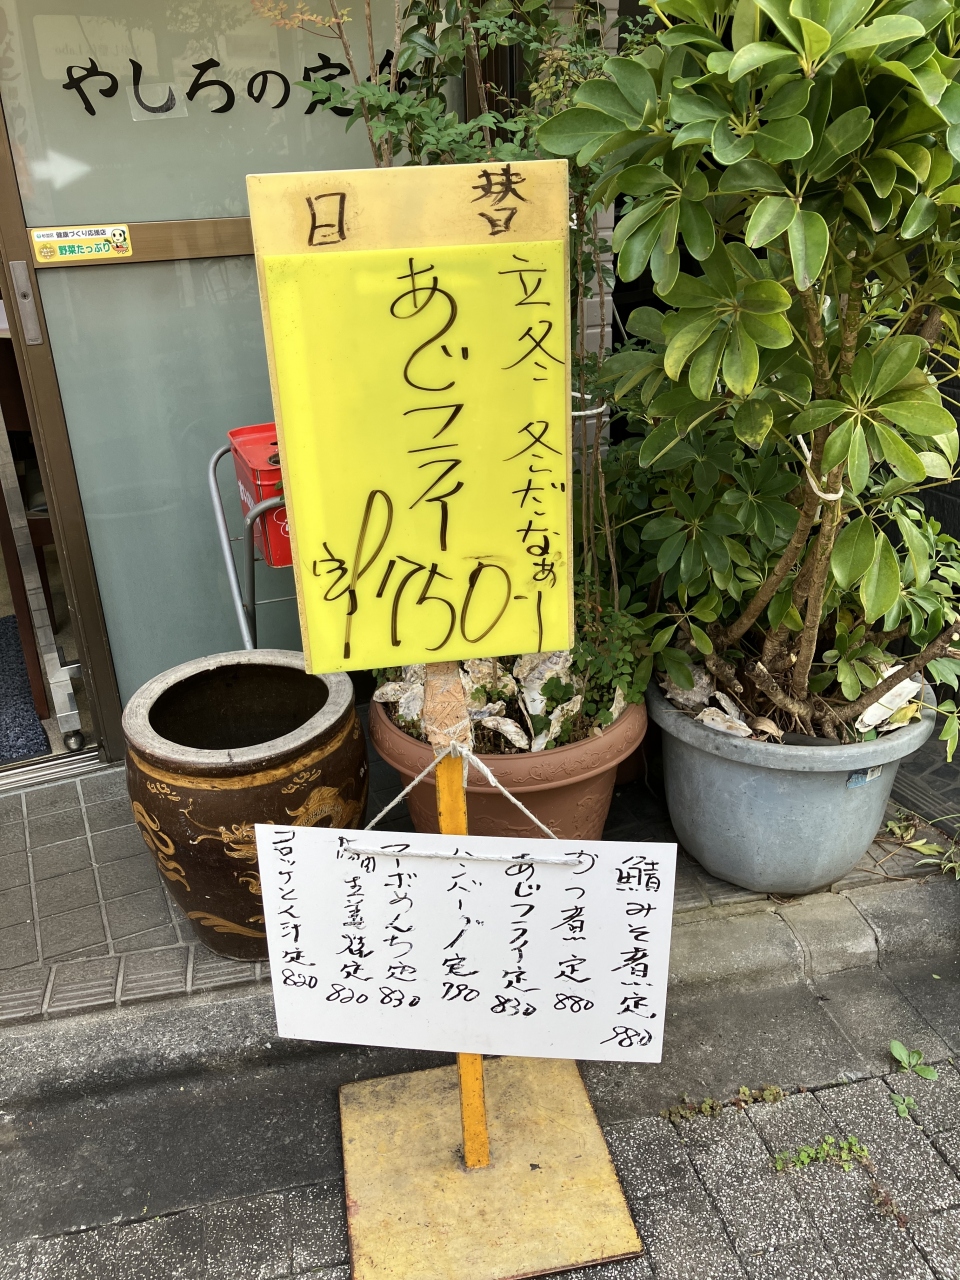 やしろの定食
健康づくり応援店
野菜たっぷり
日替
立冬 冬だなぁー
あじフライ
定 750
鯖みそ煮定 980
かつ煮定 880
あじフライ定 830
ハンバーグ定 790
マーボめんち定 830
生姜焼定 820
コロッケとん汁定 820